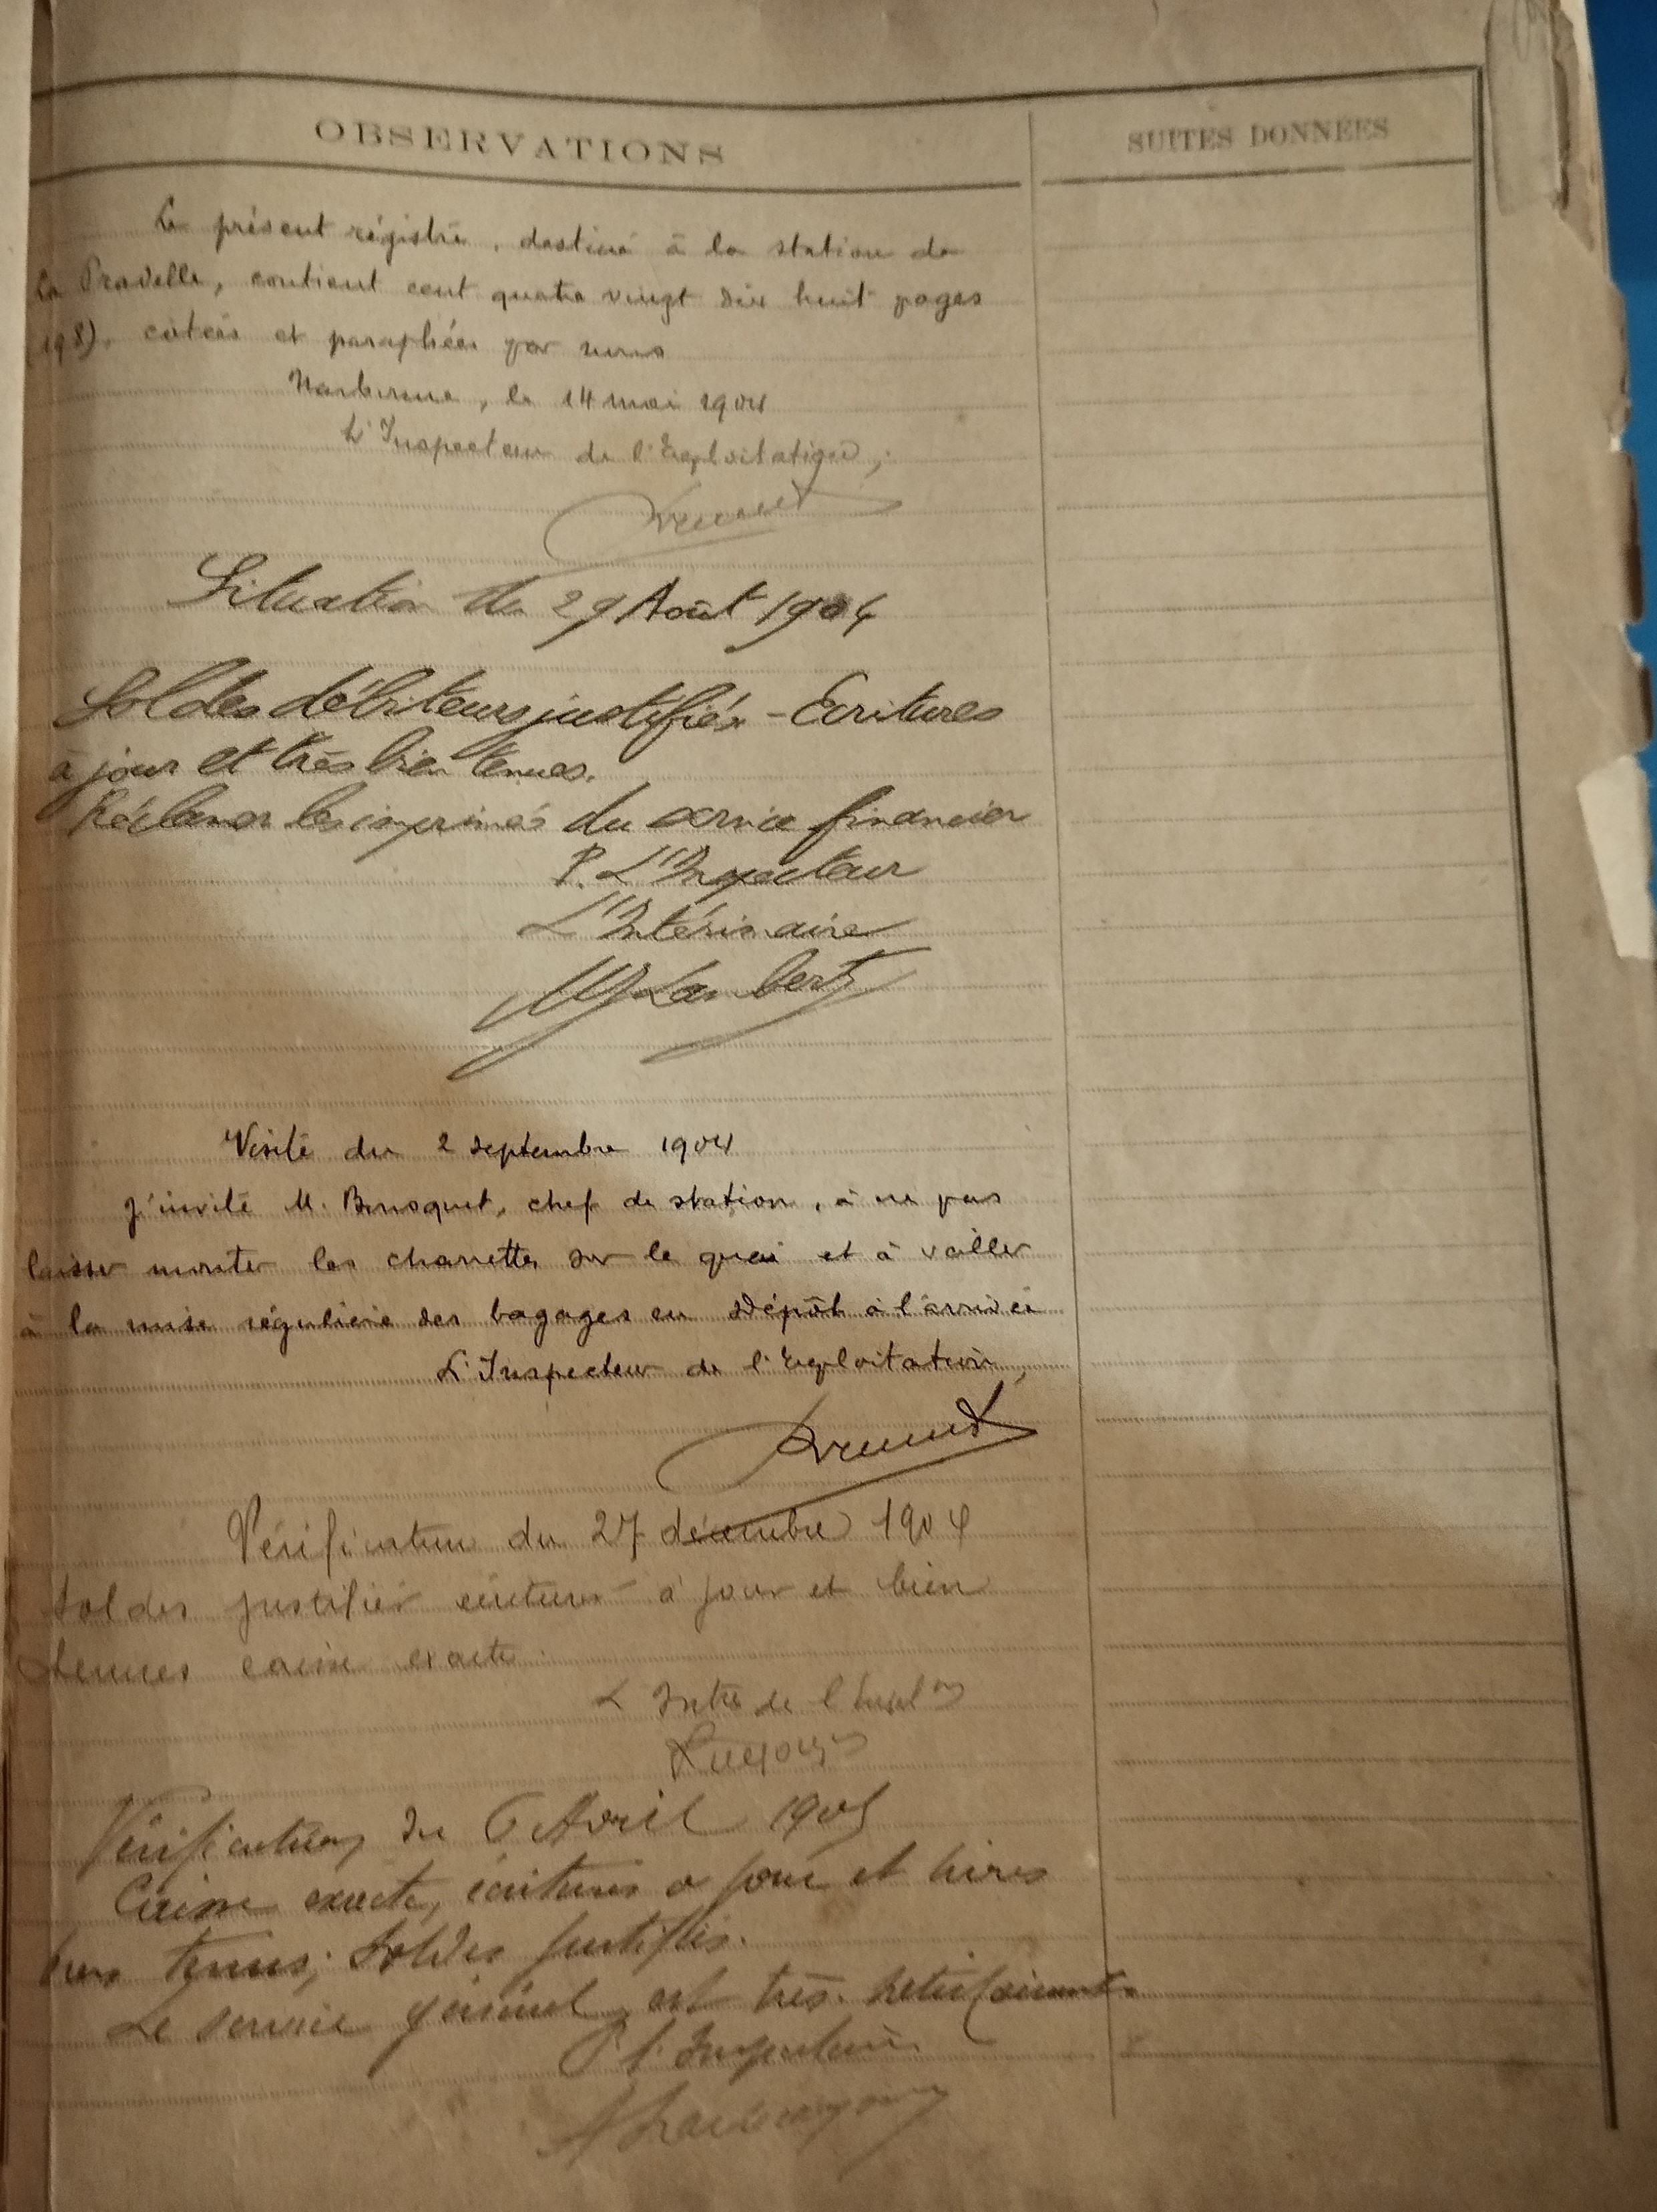 OBSERVATIONS
SUITES DONNÉES
Le présent régistre, destiné à la station de
La Pradelle, contient cent quatre vingt dix huit pages
(198), côtées et paraphées par nous
Narbonne, le 14 mai 1904
L'Inspecteur de l'Exploitation,
Situation du 29 Août 1904
Soldes débiteurs justifiés - Ecritures
à jour et très bien tenues.
Réclamer les imprimés du service financier
P. L'Inspecteur
L'Intérimaire
Lambert
Visite du 2 septembre 1904
J'invite M. Bousquet, chef de station, à ne pas
laisser monter les charrettes sur le quai et à veiller
à la mise régulière des bagages en dépôt à l'arrivée
L'Inspecteur de l'Exploitation,
Vérification du 27 décembre 1904
Soldes justifiés écritures à jour et bien
tenues caisse exacte.
L'Int de l'Expl
Vérification du 6 Avril 1905
Caisse exacte, écritures à jour et
bien tenues; Soldes justifiés.
Le service général est très
P l'Inspecteur